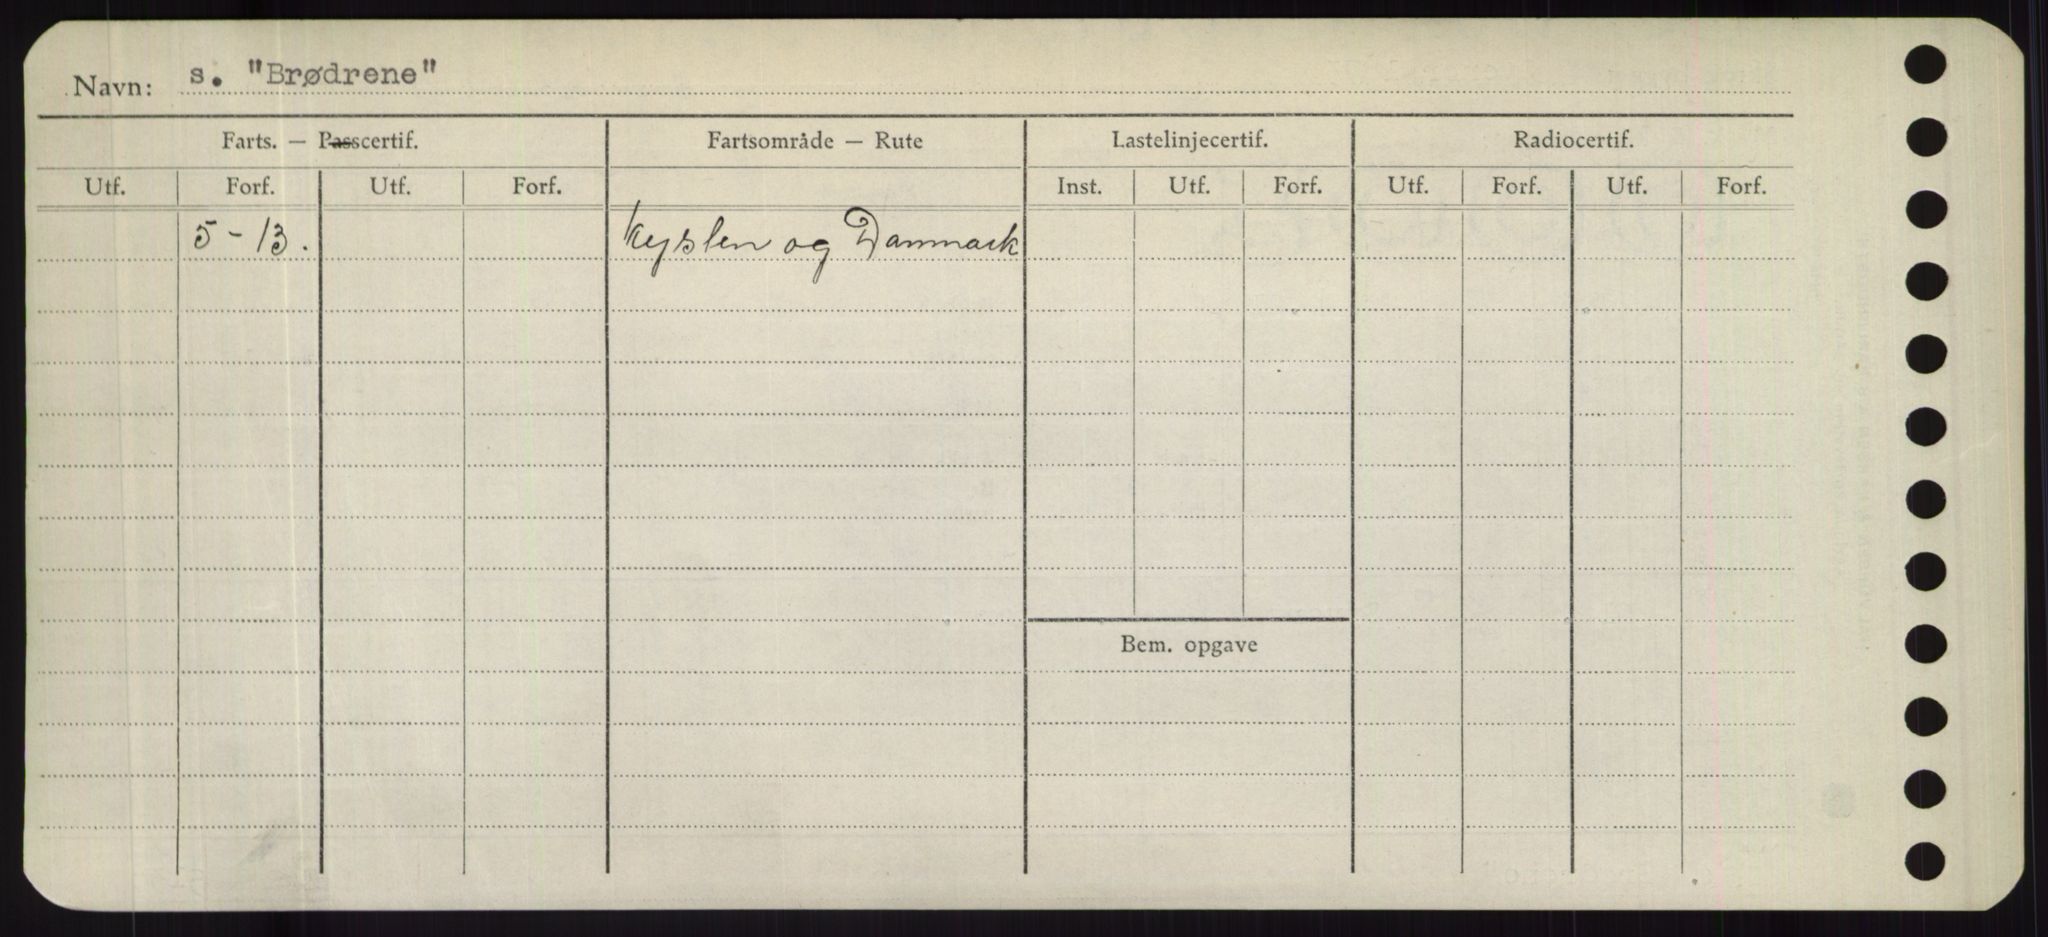 Navn: s. "Brødrene"
Farts. — Passcertif. Fartsområde — Rute Lastelinjecertif. Radiocertif.
Utf. Forf. Utf. Forf. Inst. Utf. Forf. Utf. Forf. Utf. Forf.
5-13. Kysten og Danmark
Bem. opgave